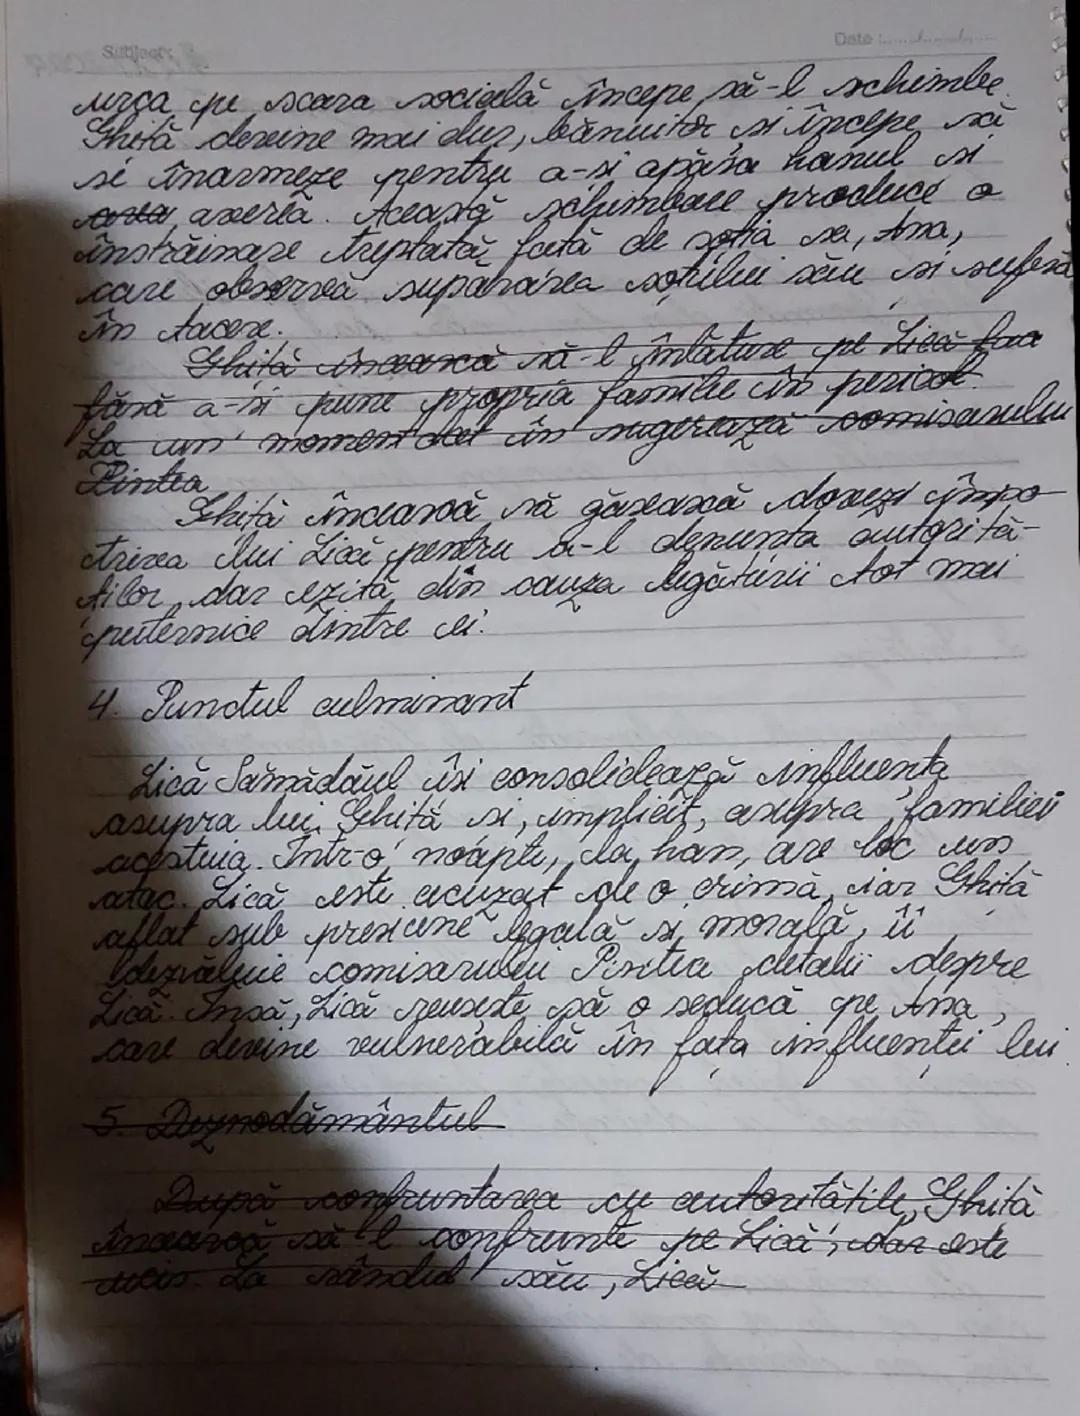 Subject:
Date :
urca pe scara socială începe să-l schimbe.
Ghiță devine mai dur, bănuitor si începe să
se înarmeze pentru a-si apăra hanul si
averea. Această schimbare produce o
înstrăinare treptată fată de soția sa, Ana,
care observă supărarea soțului său si suferă
în tacere.
Ghiță încearcă să-l înlăture pe Lică
fără a-si pune propria familie în pericol.
La un moment dat îi sugerează comisarului
Pintea
Ghiță încearcă să găsească dovezi împo-
triva lui Lică pentru a-l denunta autorită-
tilor, dar ezită din cauza legăturii tot mai
puternice dintre ei.
4. Punctul culminant
Lică Sămădăul isi consolidează influenta
asupra lui Ghiță si, implicit, asupra familiei
acestuia. Într-o noapte, la han, are loc un
atac. Lică este acuzat de o crimă, iar Ghită
aflat sub presiune legală si morală, îi
dezvăluie comisarului Pintea detalii despre
Lică. Însă, Lică reuseste să o seducă pe Ana,
care devine vulnerabilă în fața influenței lui
5. Deznodământul
După confruntarea cu autoritătile, Ghită
încearcă să-l confrunte pe Lică, dar este
ucis. La rândul său, Lică